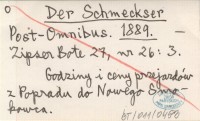 Der Schmeckser
Post-Omnibus. 1889.
Zipser Bote 27, nr 26: 3.
Godziny i ceny przejazdów
z Popradu do Nowego Smo-
kowca.
bt/011/0480